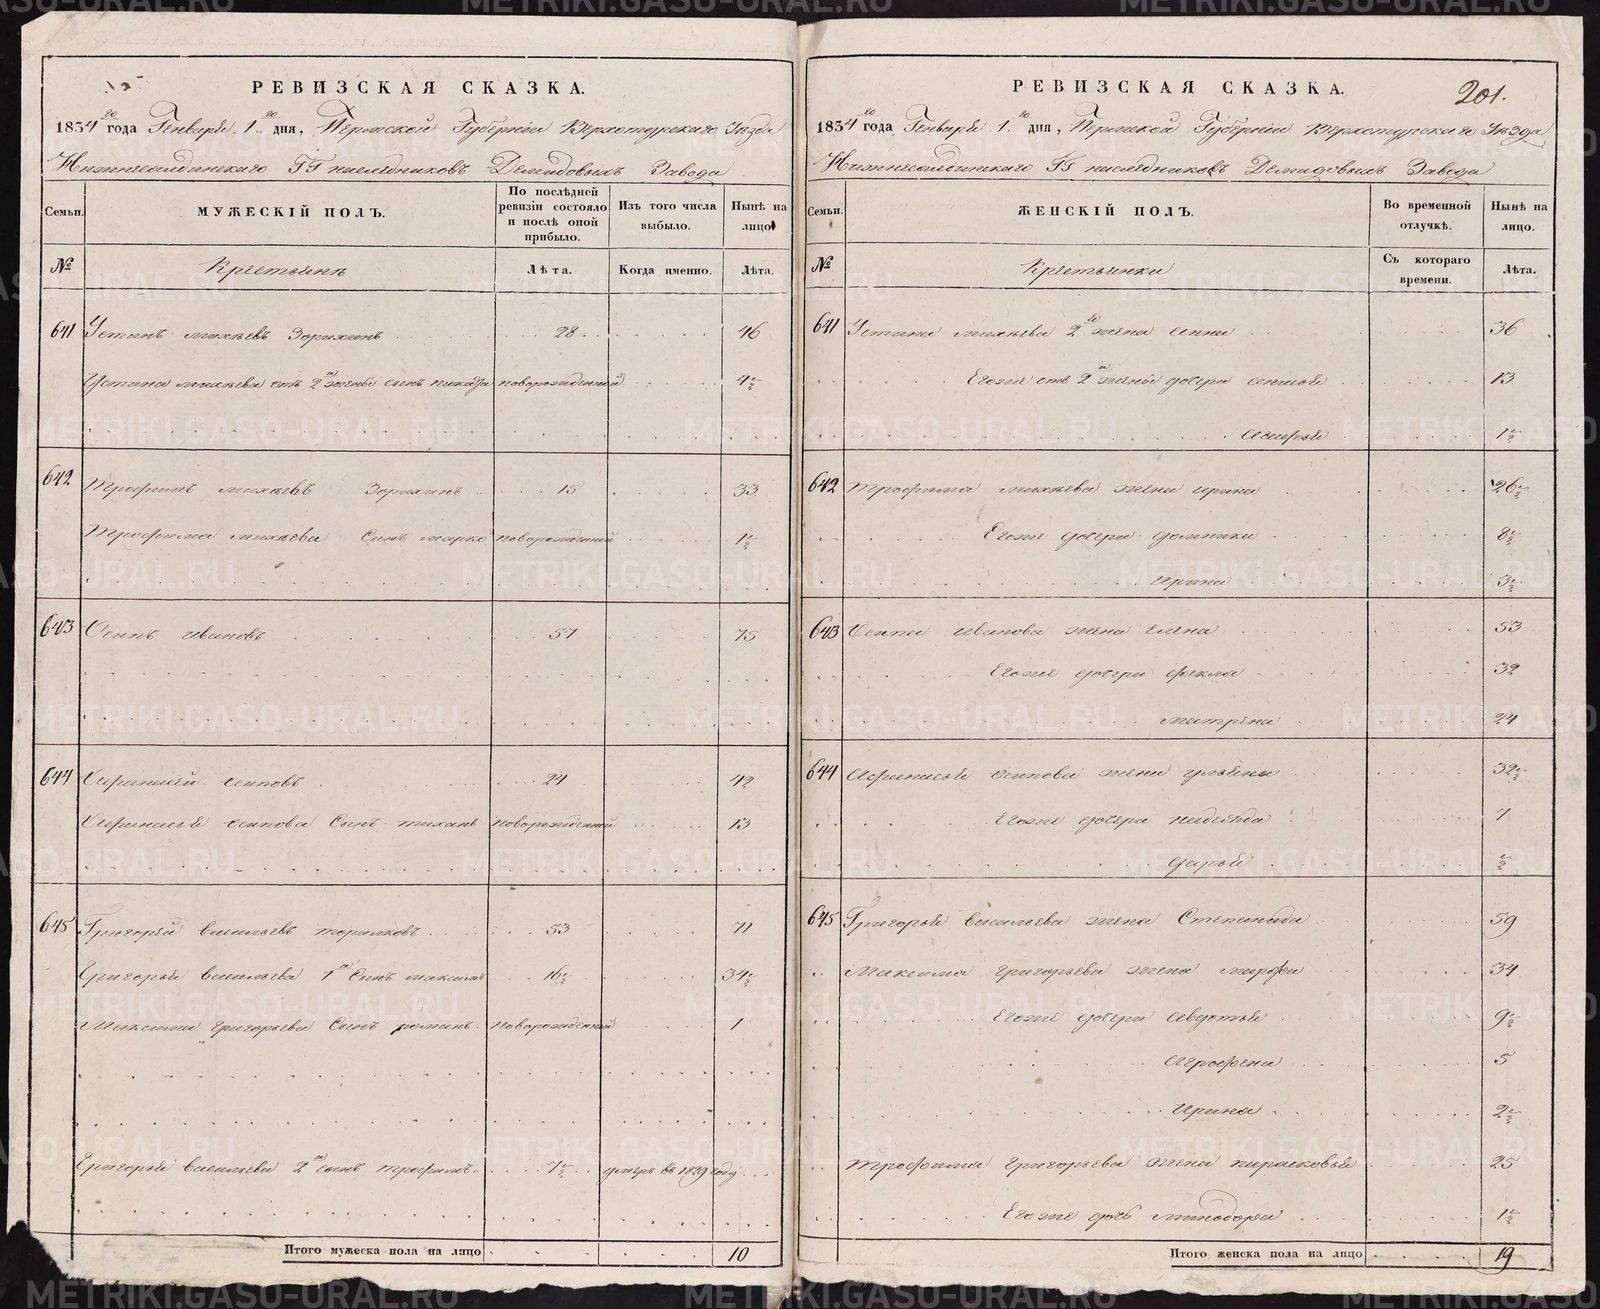 РЕВИЗСКАЯ СКАЗКА.
1834го года Генваря 1го дня, Пермской Губернiи Верхотурскаго Уѣзда
Нижнесалдинскаго ГГ наслѣдниковъ Демидовыхъ Завода
Семьи.
МУЖЕСКІЙ ПОЛЪ.
По послѣдней ревизіи состояло и послѣ оной прибыло.
Изъ того числа выбыло.
Нынѣ на лицо
№
Крестьяне
Лѣта.
Когда именно.
Лѣта.
641 Устинъ михѣевъ Зорихинъ 28 46
Устина михѣева отъ 2й жены сынъ новорожденный 4½
642 Трофимъ михѣевъ Зорихинъ 15 33
Трофима михѣева Сынъ марко новорожденный 1½
643 Осипъ ивановъ 57 75
644 Афанасей осиповъ 24 42
Афанасья осипова Сынъ тиханъ новорожденной 13
645 Григорей васильевъ 53 71
Григорья васильева 1й Сынъ максимъ 16½ 34½
Максима григорьева Сынъ романъ новорожденный 1
Григорья васильева 2й сынъ трофимъ 7½ умеръ въ 1829 году
Итого мужеска пола на лицо 10
201.
РЕВИЗСКАЯ СКАЗКА.
1834го года Генваря 1го дня, Пермской Губернiи Верхотурскаго Уѣзда
Нижнесалдинскаго ГГ наслѣдниковъ Демидовыхъ Завода
Семьи.
ЖЕНСКІЙ ПОЛЪ.
Во временной отлучкѣ.
Нынѣ на лицо.
№
Крестьянки
Съ котораго времени.
Лѣта.
641 Устина михѣева 2я жена анна 36
Егоже отъ 2й жены дочери 13
1½
642 Трофима михѣева жена ирина 26½
Егоже дочери домника 8½
ирина 3½
643 Осипа иванова жена елена 53
Егоже дочери фекла 32
матрена 24
644 Афанасья осипова жена ульяна 32½
Егоже дочери надежда 7
дарья ½
645 Григорья васильева жена Степанида 59
Максима григорьева жена марфа 34
Егоже дочери авдотья 9½
Агрофена 5
ирина 2½
Трофима григорьева жена парасковья 25
Егоже дочь минодора 1½
Итого женска пола на лицо 19
METRIKI.GASO-URAL.RU